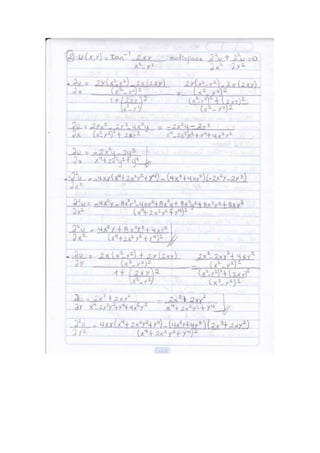 ② u(x,y) = tan⁻¹ 2xy / x²-y² satisface ∂²u/∂x² + ∂²u/∂y² = 0
• ∂u/∂x = [2y(x²-y²) - 2x(2xy) / (x²-y²)²] / [1 + (2xy / x²-y²)²] = [2y(x²-y²) - 2x(2xy) / (x²-y²)²] / [(x²-y²)² + (2xy)² / (x²-y²)²]
∂u/∂x = 2yx² - 2y³ - 4x²y / (x²-y²)² + 2xy² = -2x²y - 2y³ / x⁴-2x²y²+y⁴+4x²y²
∂u/∂x = -2x²y - 2y³ / x⁴+2x²y²+y⁴
• ∂²u/∂x² = -4xy(x⁴+2x²y²+y⁴) - (4x³+4xy²)(-2x²y-2y³)
∂²u/∂x² = / (x⁴+2x²y²+y⁴)²
∂²u/∂x² = 4x⁵y + 8x³y³ + 4xy⁵ / (x⁴+2x²y²+y⁴)²
• ∂u/∂y = [2x(x²-y²) + 2y(2xy) / (x²-y²)²] / [1 + (2xy / x²-y²)²] = [2x³-2xy²+4xy² / (x²-y²)²] / [(x²-y²)² + (2xy)² / (x²-y²)²]
∂u/∂y = 2x³ + 2xy² / x⁴-2x²y²+y⁴+4x²y² = 2x³ + 2xy² / x⁴+2x²y²+y⁴
∂²u/∂y² = 4xy(x⁴+2x²y²+y⁴) - (4x²y+4y³)(2x³+2xy²) / (x⁴+2x²y²+y⁴)²